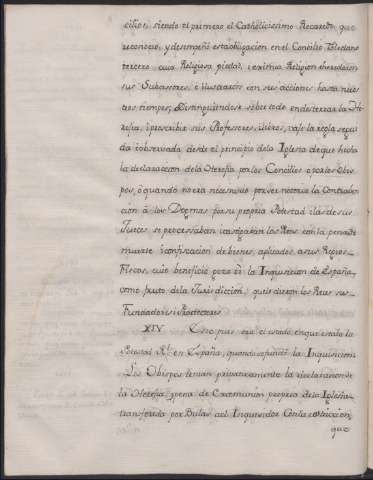 cilios, siendo el primero el Catholicissimo Recaredo que
reconoció, y desempeñó esta obligacion en el Concilio Toledano
tercero, cuia Religiosa piedad, i eximia Religion heredaron
sus Subcesores, è ilustraron con sus acciones hasta nues
tros tiempos; distinguiendose sobre todo en desterrar la He-
regia, i proscribir sus Profesores, i libros, vaxo la regla segui
da i observada desde el principio de la Iglesia de que hecha
la declaracion de la Heregia por los Concilios o por los Obis
pos, ò quando no era necesario por ser notoria la Contraven
cion à los Dogmas por su propria Potestad i la de sus
Jueces se procesaban i castigaban los Reos con la pena de
muerte i confiscacion de bienes, aplicados a sus Regios
Fiscos, cuio beneficio goza oi la Inquisicion de España,
como fruto de la Jurisdiccion, que la dieron los Reies sus
Fundadores i Protectores
XIV. Este pues era el estado, en que estaba la
Potestad Rl. en España, quando se fundó la Inquisicion.
Los Obispos tenian privativamente la declaracion de
la Heregia, i pena de Excomunion propria de la Iglesia
transferida por Bulas al Inquisidor Con la restriccion,
que